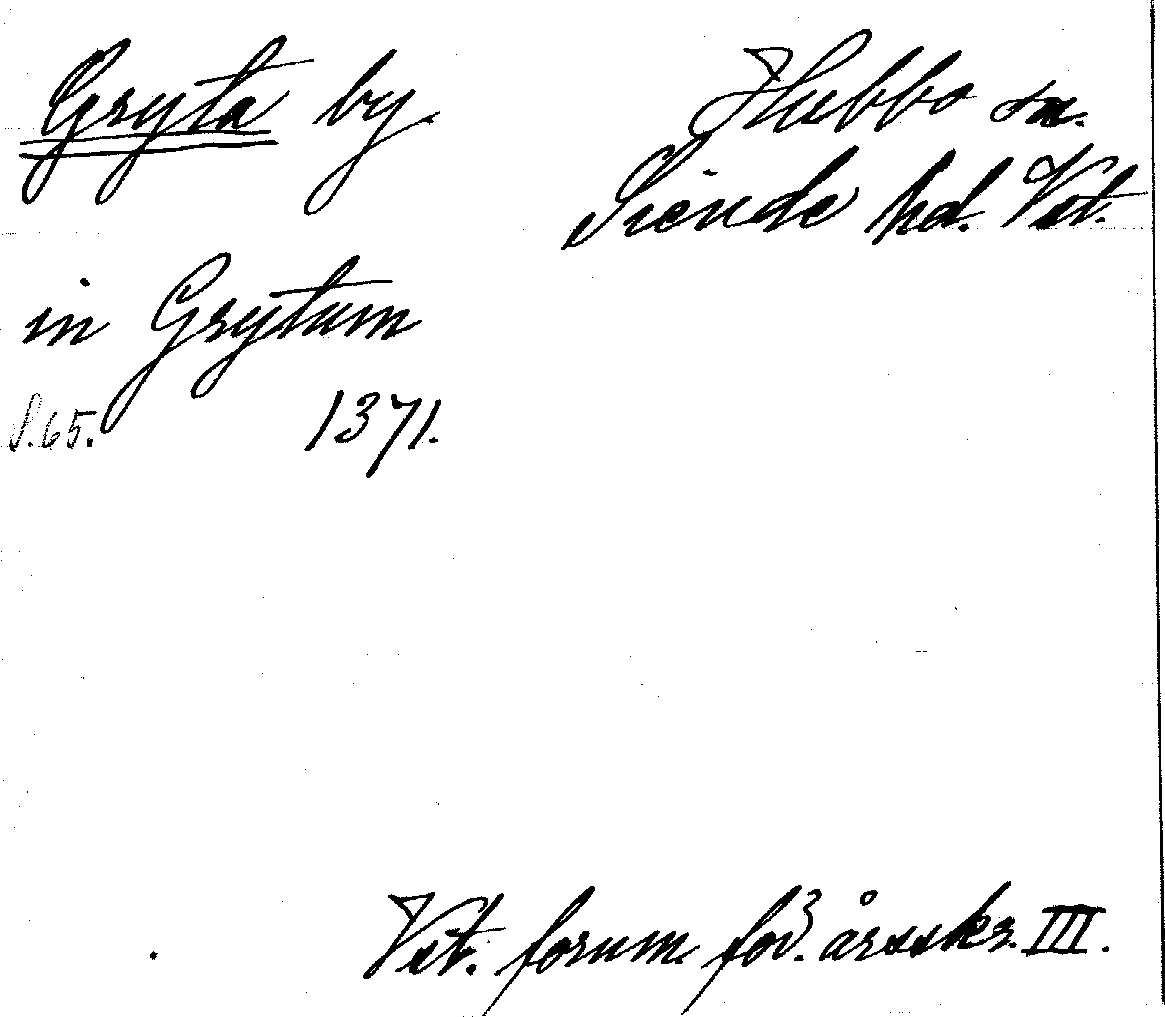 Gryta by. Hubbo sn.
Siende hd. Vst.
in Grytum
S. 65. 1371.
Vst. fornm. för. årsskr. III.